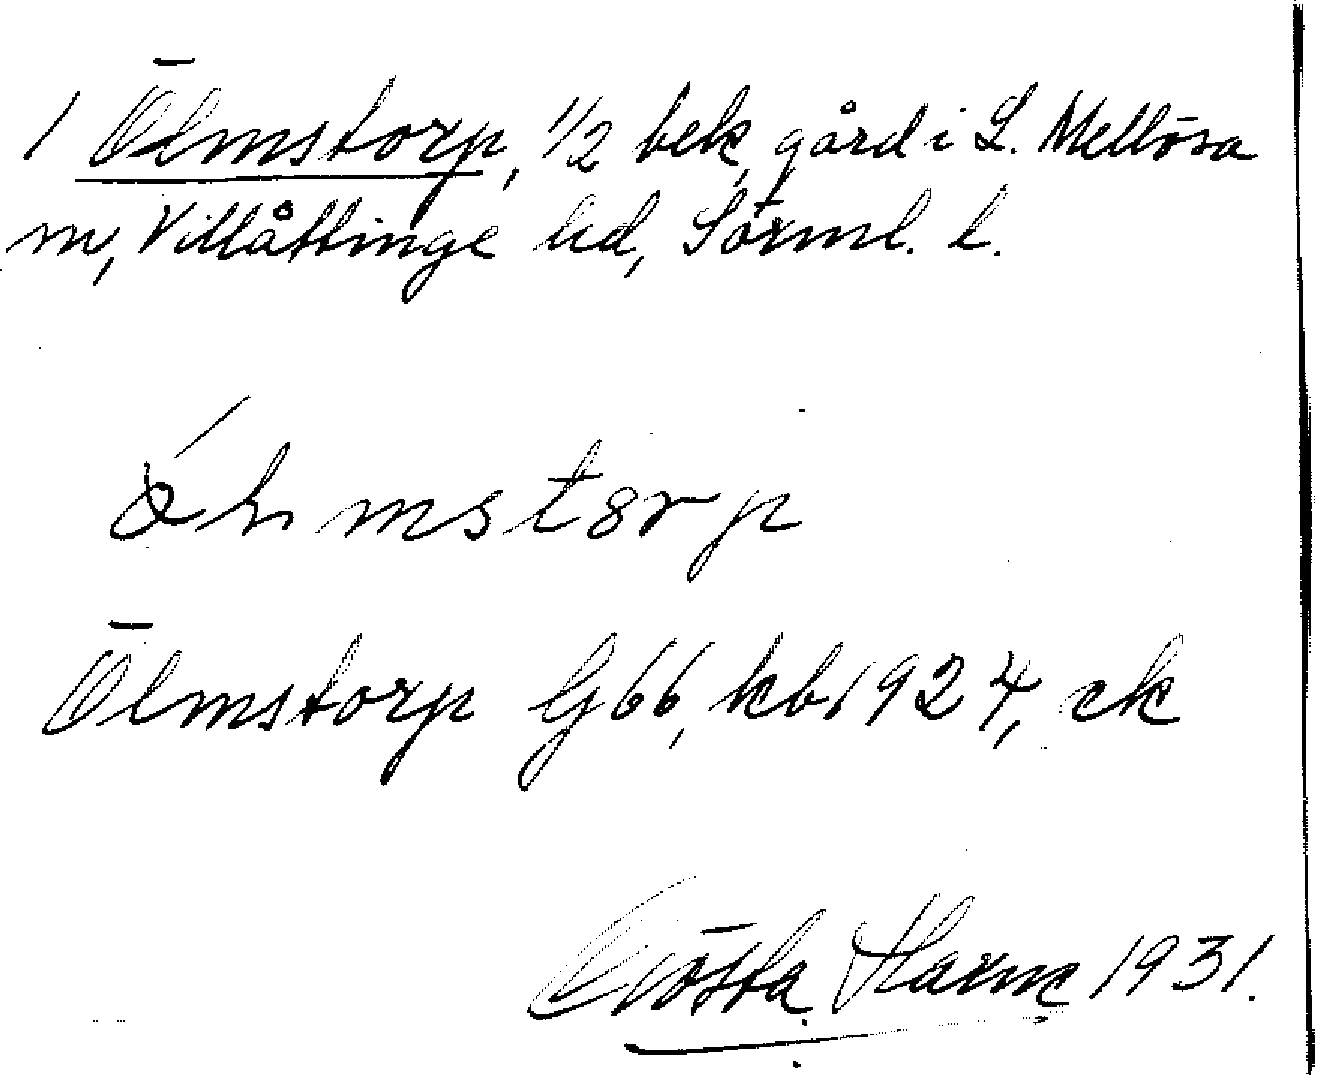 1 Ölmstorp, 1/2 bek, gård i L. Mellösa
sn, Villåttinge hd, Sörml. l.
Ölmstorp G66, kb 1924, ek
Gösta 1931.